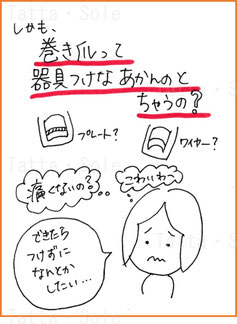 しかも、
巻き爪って
器具つけな あかんのと
ちゃうの?
プレート?
ワイヤー?
痛くないの?
こわいわ〜
できたら
つけずに
なんとか
したい…
Tatta・Sole